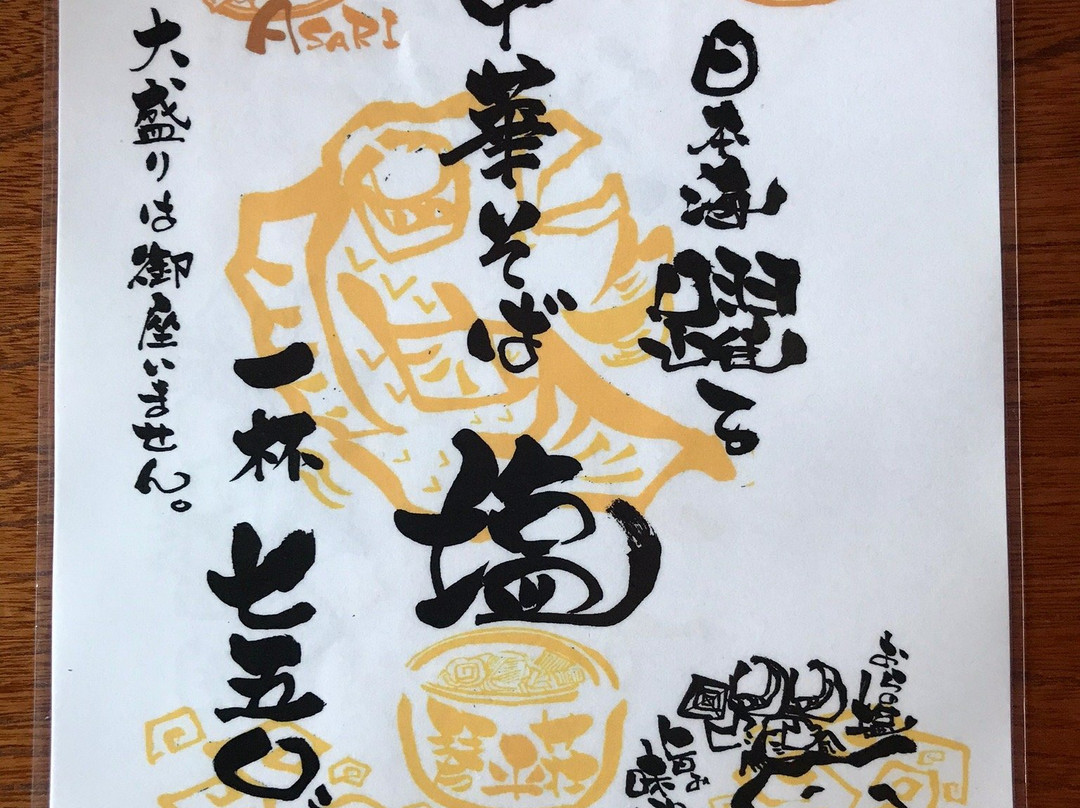 日本海
躍る
中華そば
塩
一杯
七五〇
大盛りは御座いません。
ASARI
琴平荘